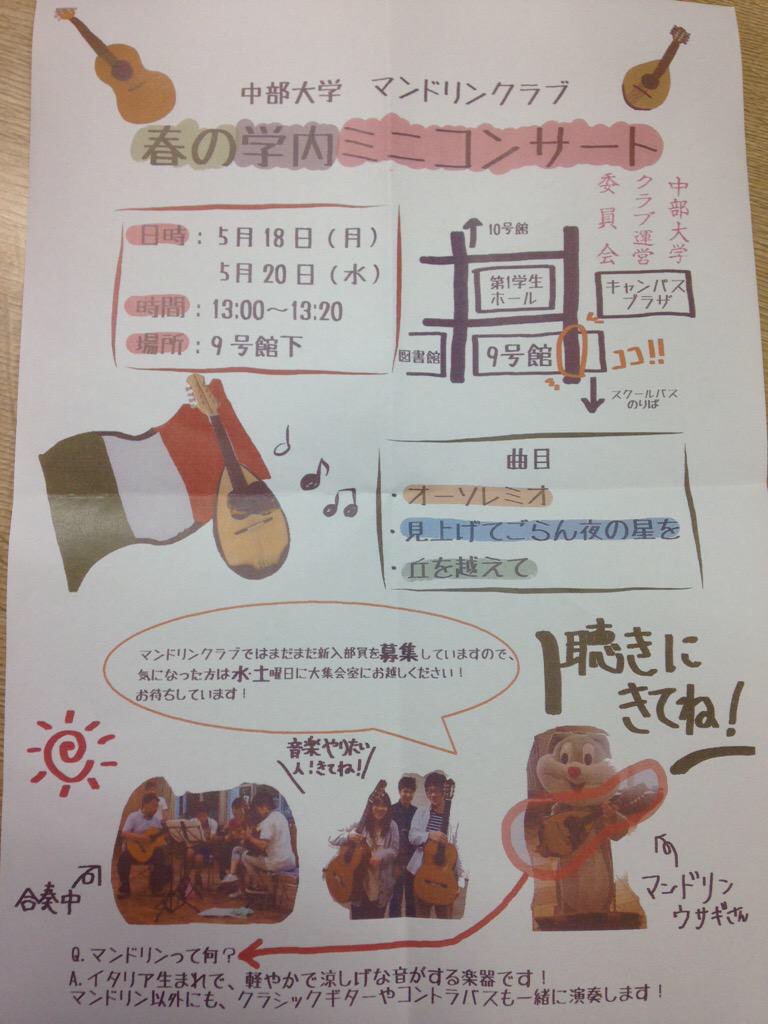 中部大学 マンドリンクラブ
春の学内ミニコンサート
中部大学
クラブ運営
委員会
日時：5月18日（月）
5月20日（水）
時間：13:00〜13:20
場所：9号館下
10号館
第1学生
ホール
キャンパス
プラザ
図書館
9号館
ココ!!
スクールバス
のりば
曲目
・オーソレミオ
・見上げてごらん夜の星を
・丘を越えて
マンドリンクラブではまだまだ新入部員を募集していますので、
気になった方は水・土曜日に大集会室にお越しください！
お待ちしています！
聴きに
きてね！
音楽やりたい
人！きてね！
合奏中
マンドリン
ウサギさん
Q.マンドリンって何？
A.イタリア生まれで、軽やかで涼しげな音がする楽器です！
マンドリン以外にも、クラシックギターやコントラバスも一緒に演奏します！